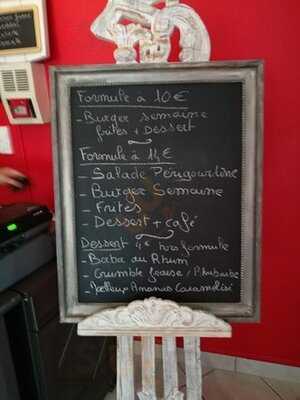 Formule à 10€
- Burger semaine
frites + Dessert
Formule à 14€
- Salade Périgourdine
- Burger Semaine
- Frites
- Dessert + café
Dessert 4€ hors formule
- Baba au Rhum
- Crumble fraise / Rhubarbe
- Moelleux Ananas Caramélisé